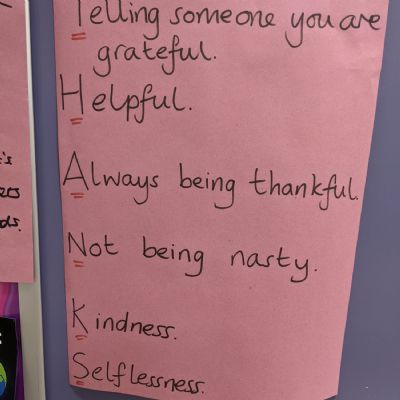 Telling someone you are
grateful.
Helpful.
Always being thankful.
Not being nasty.
Kindness.
Selflessness.